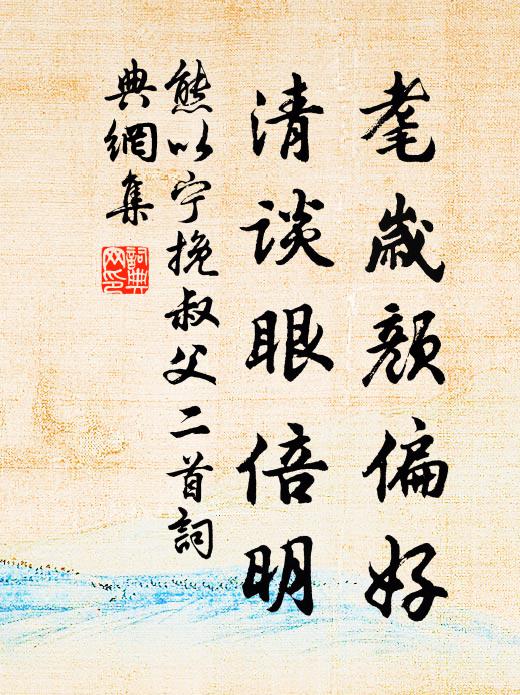 耄歲顏偏好
清談眼倍明
熊以宁挽叔父二首詞
典網集
詞典
网印